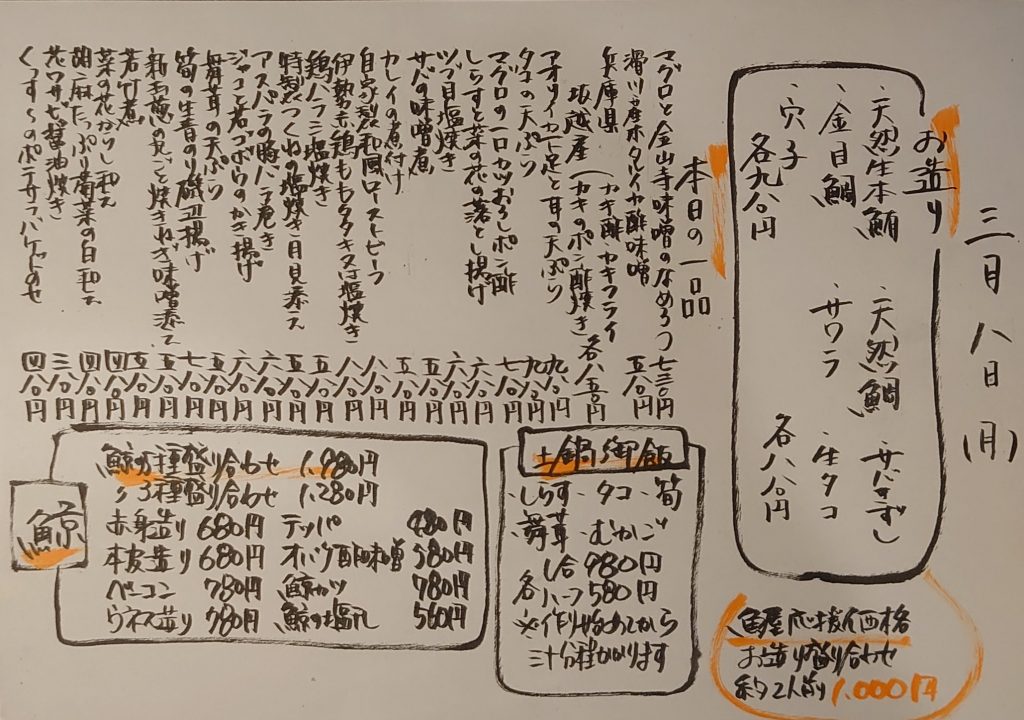 三月八日(月)
お造り
・天然生本鮪 ・天然鯛 ・サバずし
・金目鯛 ・サワラ ・生タコ
・穴子
各九八〇円 各八八〇円
魚屋応援価格
お造り盛り合わせ
約2人前 1,000円
本日の一品
マグロと金山寺味噌のなめろう 七三〇円
滑川産ホタルイカ酢味噌 五八〇円
兵庫県 (カキ酢・カキフライ
坂越産 (カキのポン酢焼き) 各八五〇円
アオリイカ下足と耳の天ぷら 九八〇円
タコの天ぷら 九八〇円
マグロの一口カツおろしポン酢 七八〇円
しらすと菜の花の落とし揚げ 六八〇円
ツブ貝塩焼き 六八〇円
サバの味噌煮 五八〇円
カレイの煮付け 八八〇円
自家製和風ローストビーフ 八八〇円
伊勢赤鶏ももタタキ又は塩焼き 八八〇円
鶏ハラミ塩焼き 五八〇円
特製つくねの塩焼き月見添え 五八〇円
アスパラの豚バラ巻き 六八〇円
ジャコと若ゴボウのかき揚げ 六八〇円
舞茸の天ぷら 五八〇円
筍の生青のり磯辺揚げ 七八〇円
新玉葱の丸ごと焼きねぎ味噌添え 五八〇円
若竹煮 五八〇円
菜の花からし和え 四八〇円
胡麻たっぷり菊菜の白和え 四八〇円
花ワサビ醤油焼き 三八〇円
くんすモのポテサラバケットのせ 四八〇円
土鍋御飯
・しらす ・タコ ・筍
・舞茸 ・むかご
各 一合 980円
ハーフ 580円
※作り始めてから
三十分程かかります
鯨
鯨5種盛り合わせ 1,980円
〃3種盛り合わせ 1,280円
赤身造り 680円 テッパ 480円
本皮造り 680円 オバケ酢味噌 580円
ベーコン 780円 鯨カツ 780円
ウネス造り 780円 鯨の塩タレ 560円